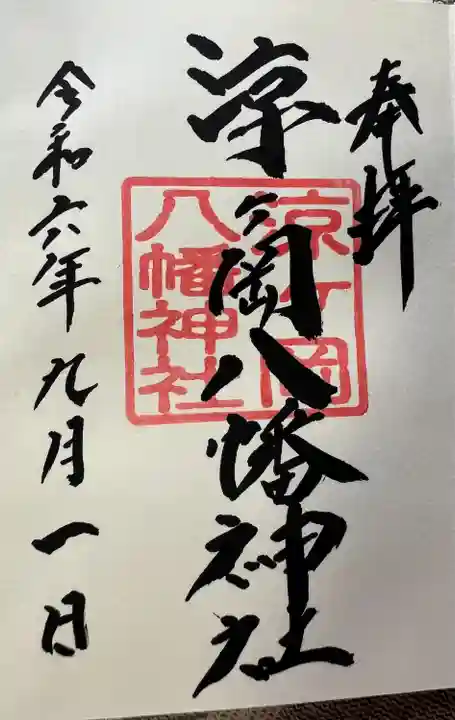 奉拝
涼ヶ岡八幡神社
涼ヶ岡
八幡神社
令和六年九月一日